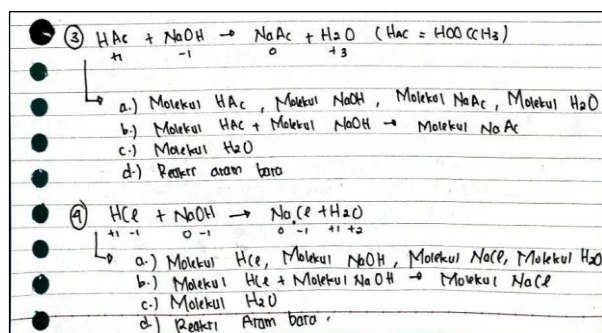 ③ HAc + NaOH → NaAc + H2O (HAc = HOOCCH3)
+1 -1 0 +3
a.) Molekul HAc, Molekul NaOH, Molekul NaAc, Molekul H2O
b.) Molekul HAc + Molekul NaOH → Molekul NaAc
c.) Molekul H2O
d.) Reaksi asam basa
④ HCl + NaOH → NaCl + H2O
+1 -1 0 -1 0 -1 +1 +2
a.) Molekul HCl, Molekul NaOH, Molekul NaCl, Molekul H2O
b.) Molekul HCl + Molekul NaOH → Molekul NaCl
c.) Molekul H2O
d.) Reaksi Asam basa.